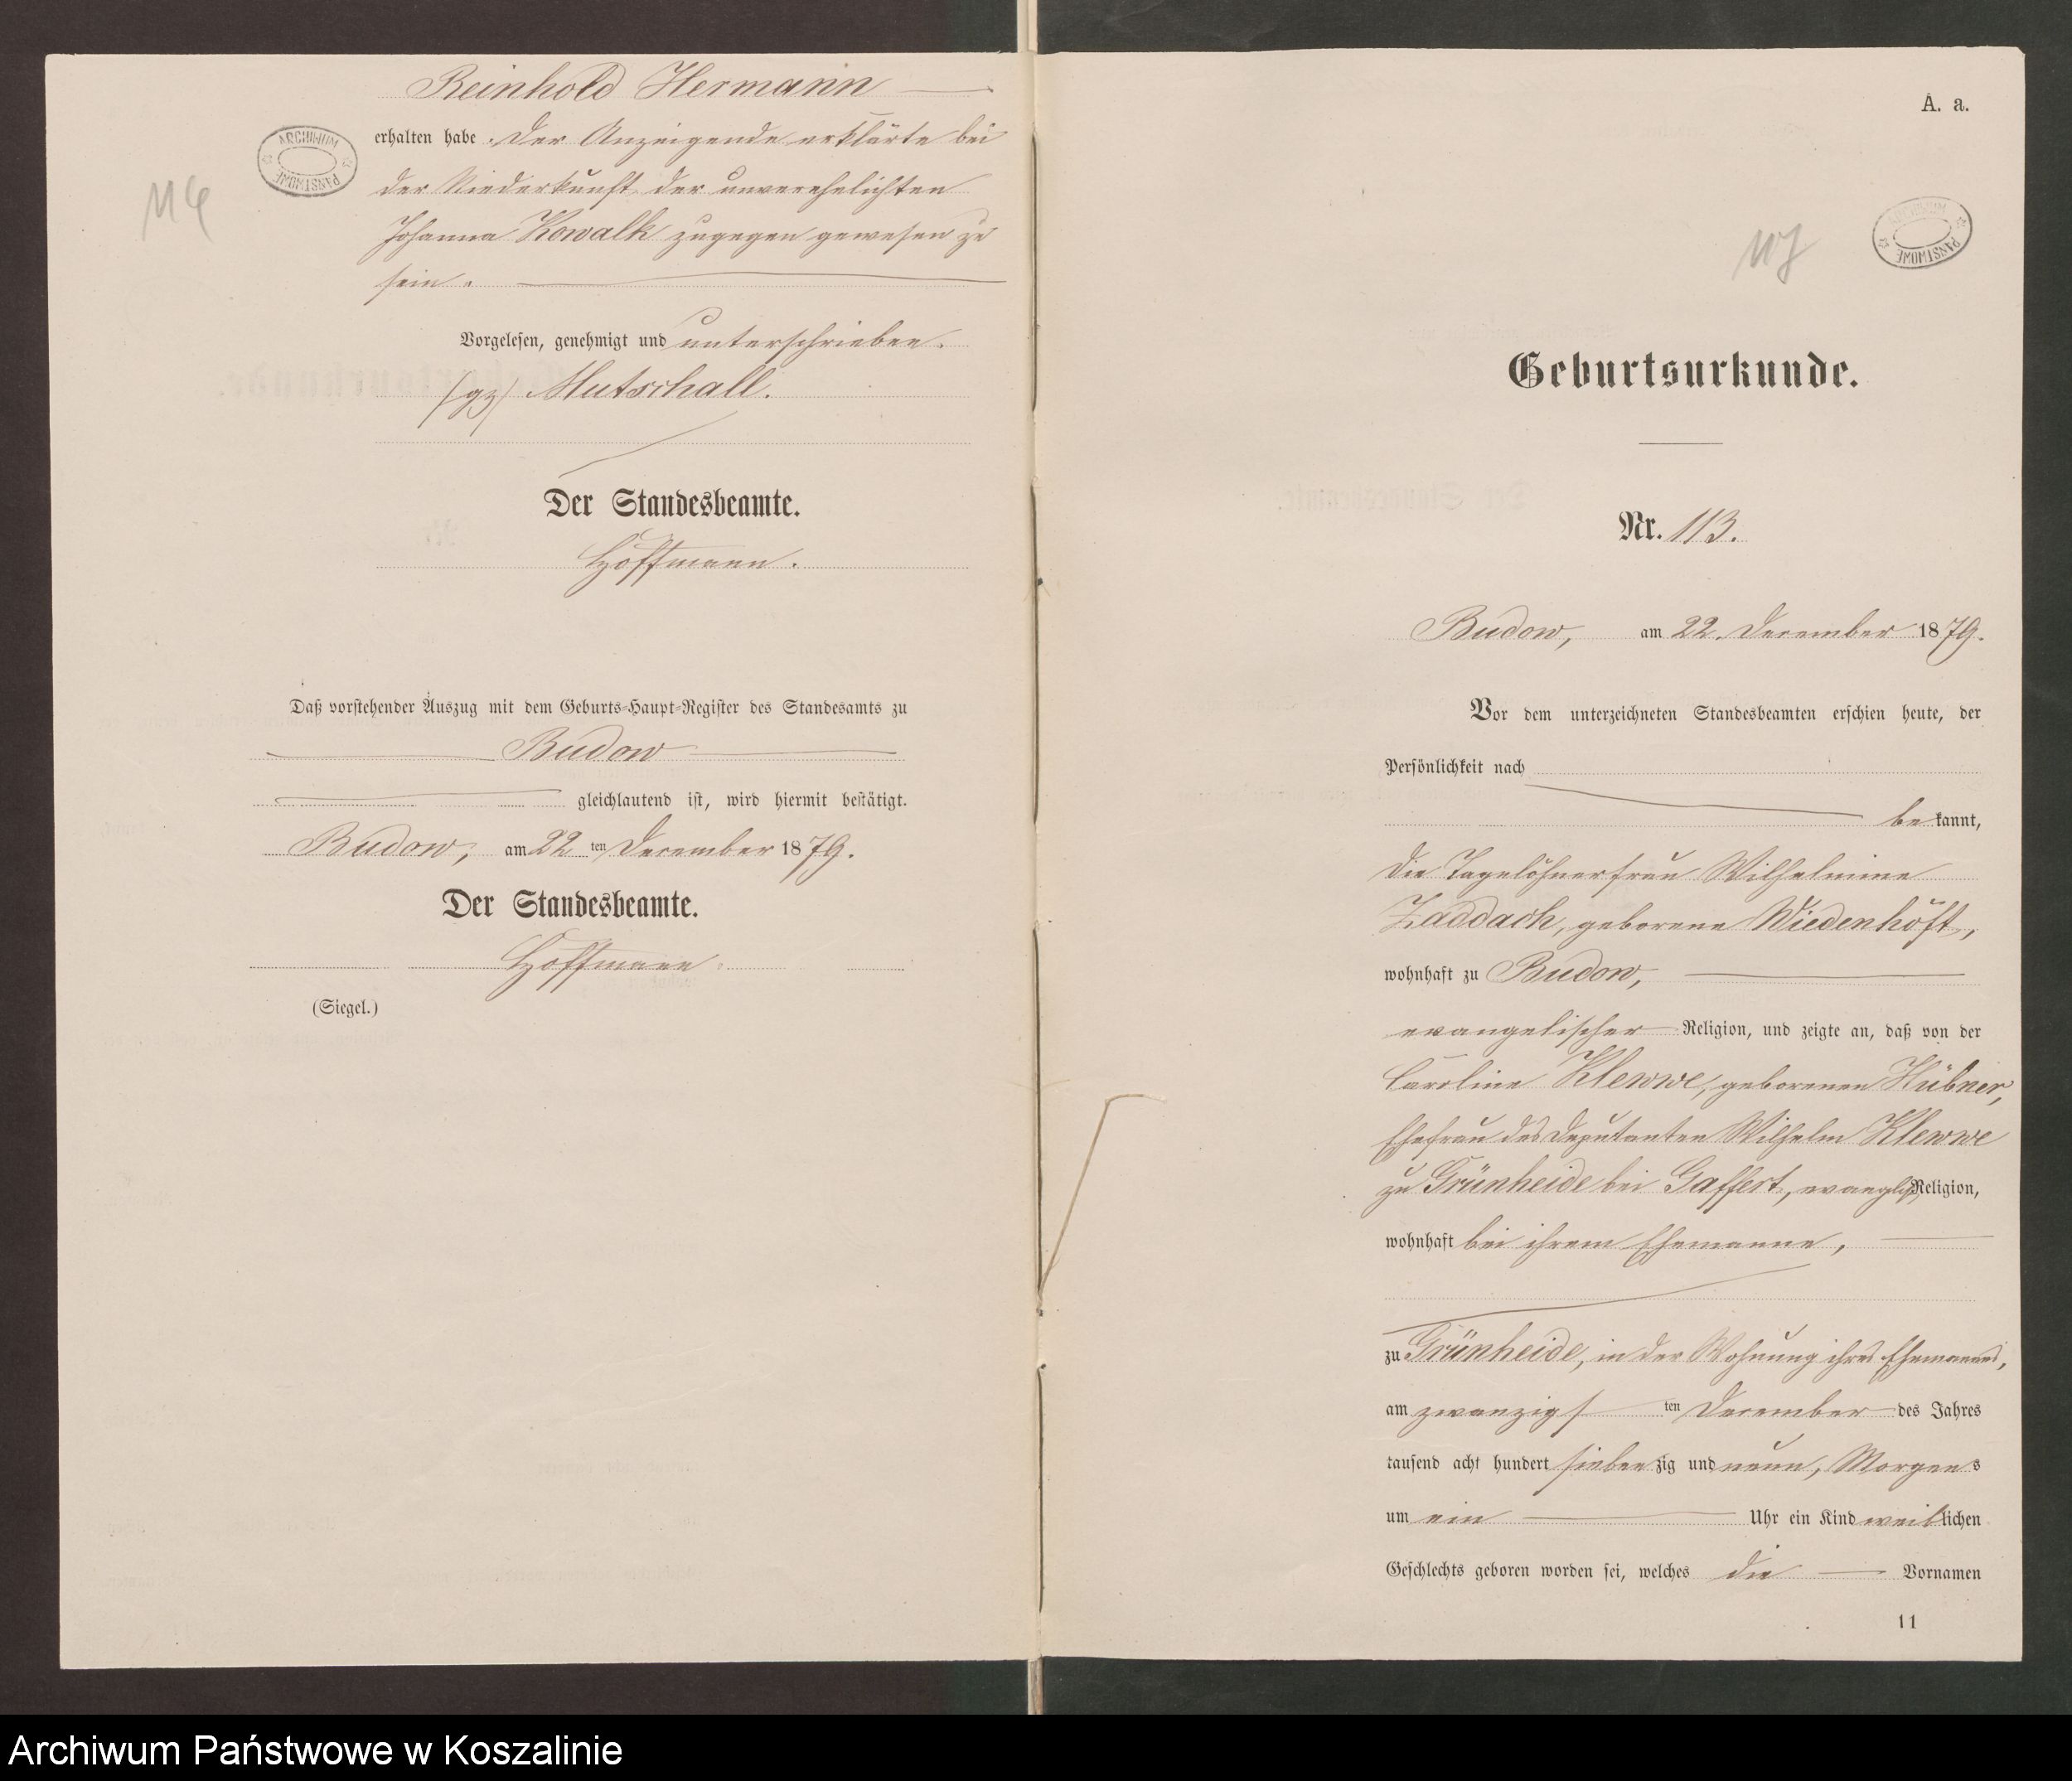 Reinhold Hermann
erhalten habe. Der Anzeigende erklärte bei
der Niederkunft der unverehelichten
Johanna Kowalk zugegen gewesen zu
sein.
Vorgelesen, genehmigt und unterschrieben.
(gz) Mutschall.
Der Standesbeamte.
Hoffmann.
Daß vorstehender Auszug mit dem Geburts-Haupt-Register des Standesamts zu
Budow
gleichlautend ist, wird hiermit bestätigt.
Budow, am 22 ten December 1879.
Der Standesbeamte.
Hoffmann.
(Siegel.)
ARCHIWUM PAŃSTWOWE
116
A. a.
ARCHIWUM PAŃSTWOWE
117
Geburtsurkunde.
Nr. 113.
Budow, am 22. December 1879.
Vor dem unterzeichneten Standesbeamten erschien heute, der
Persönlichkeit nach
bekannt,
die Tagelöhnerfrau Wilhelmine
Zaddach, geborene Wiedenhöft,
wohnhaft zu Budow,
evangelischer Religion, und zeigte an, daß von der
Caroline Klewwe, geborenen Hübner,
Ehefrau des Deputanten Wilhelm Klewwe
zu Grünheide bei Gaffert, evanglsch Religion,
wohnhaft bei ihrem Ehemanne,
zu Grünheide, in der Wohnung ihres Ehemannes,
am zwanzigsten December des Jahres
tausend acht hundert siebenzig und neun, Morgens
um ein Uhr ein Kind weiblichen
Geschlechts geboren worden sei, welches die Vornamen
11
Archiwum Państwowe w Koszalinie